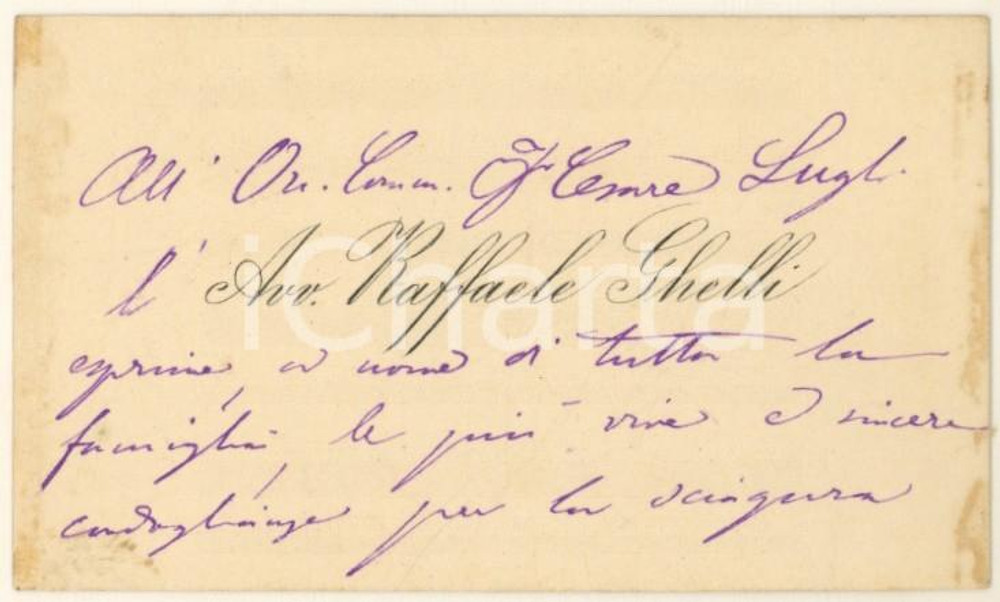 All' On. Comm. Cesare Lugli
l' Avv. Raffaele Ghelli
iCharta
esprime, a nome di tutta la
famiglia, le più vive e sincere
condoglianze per la sciagura